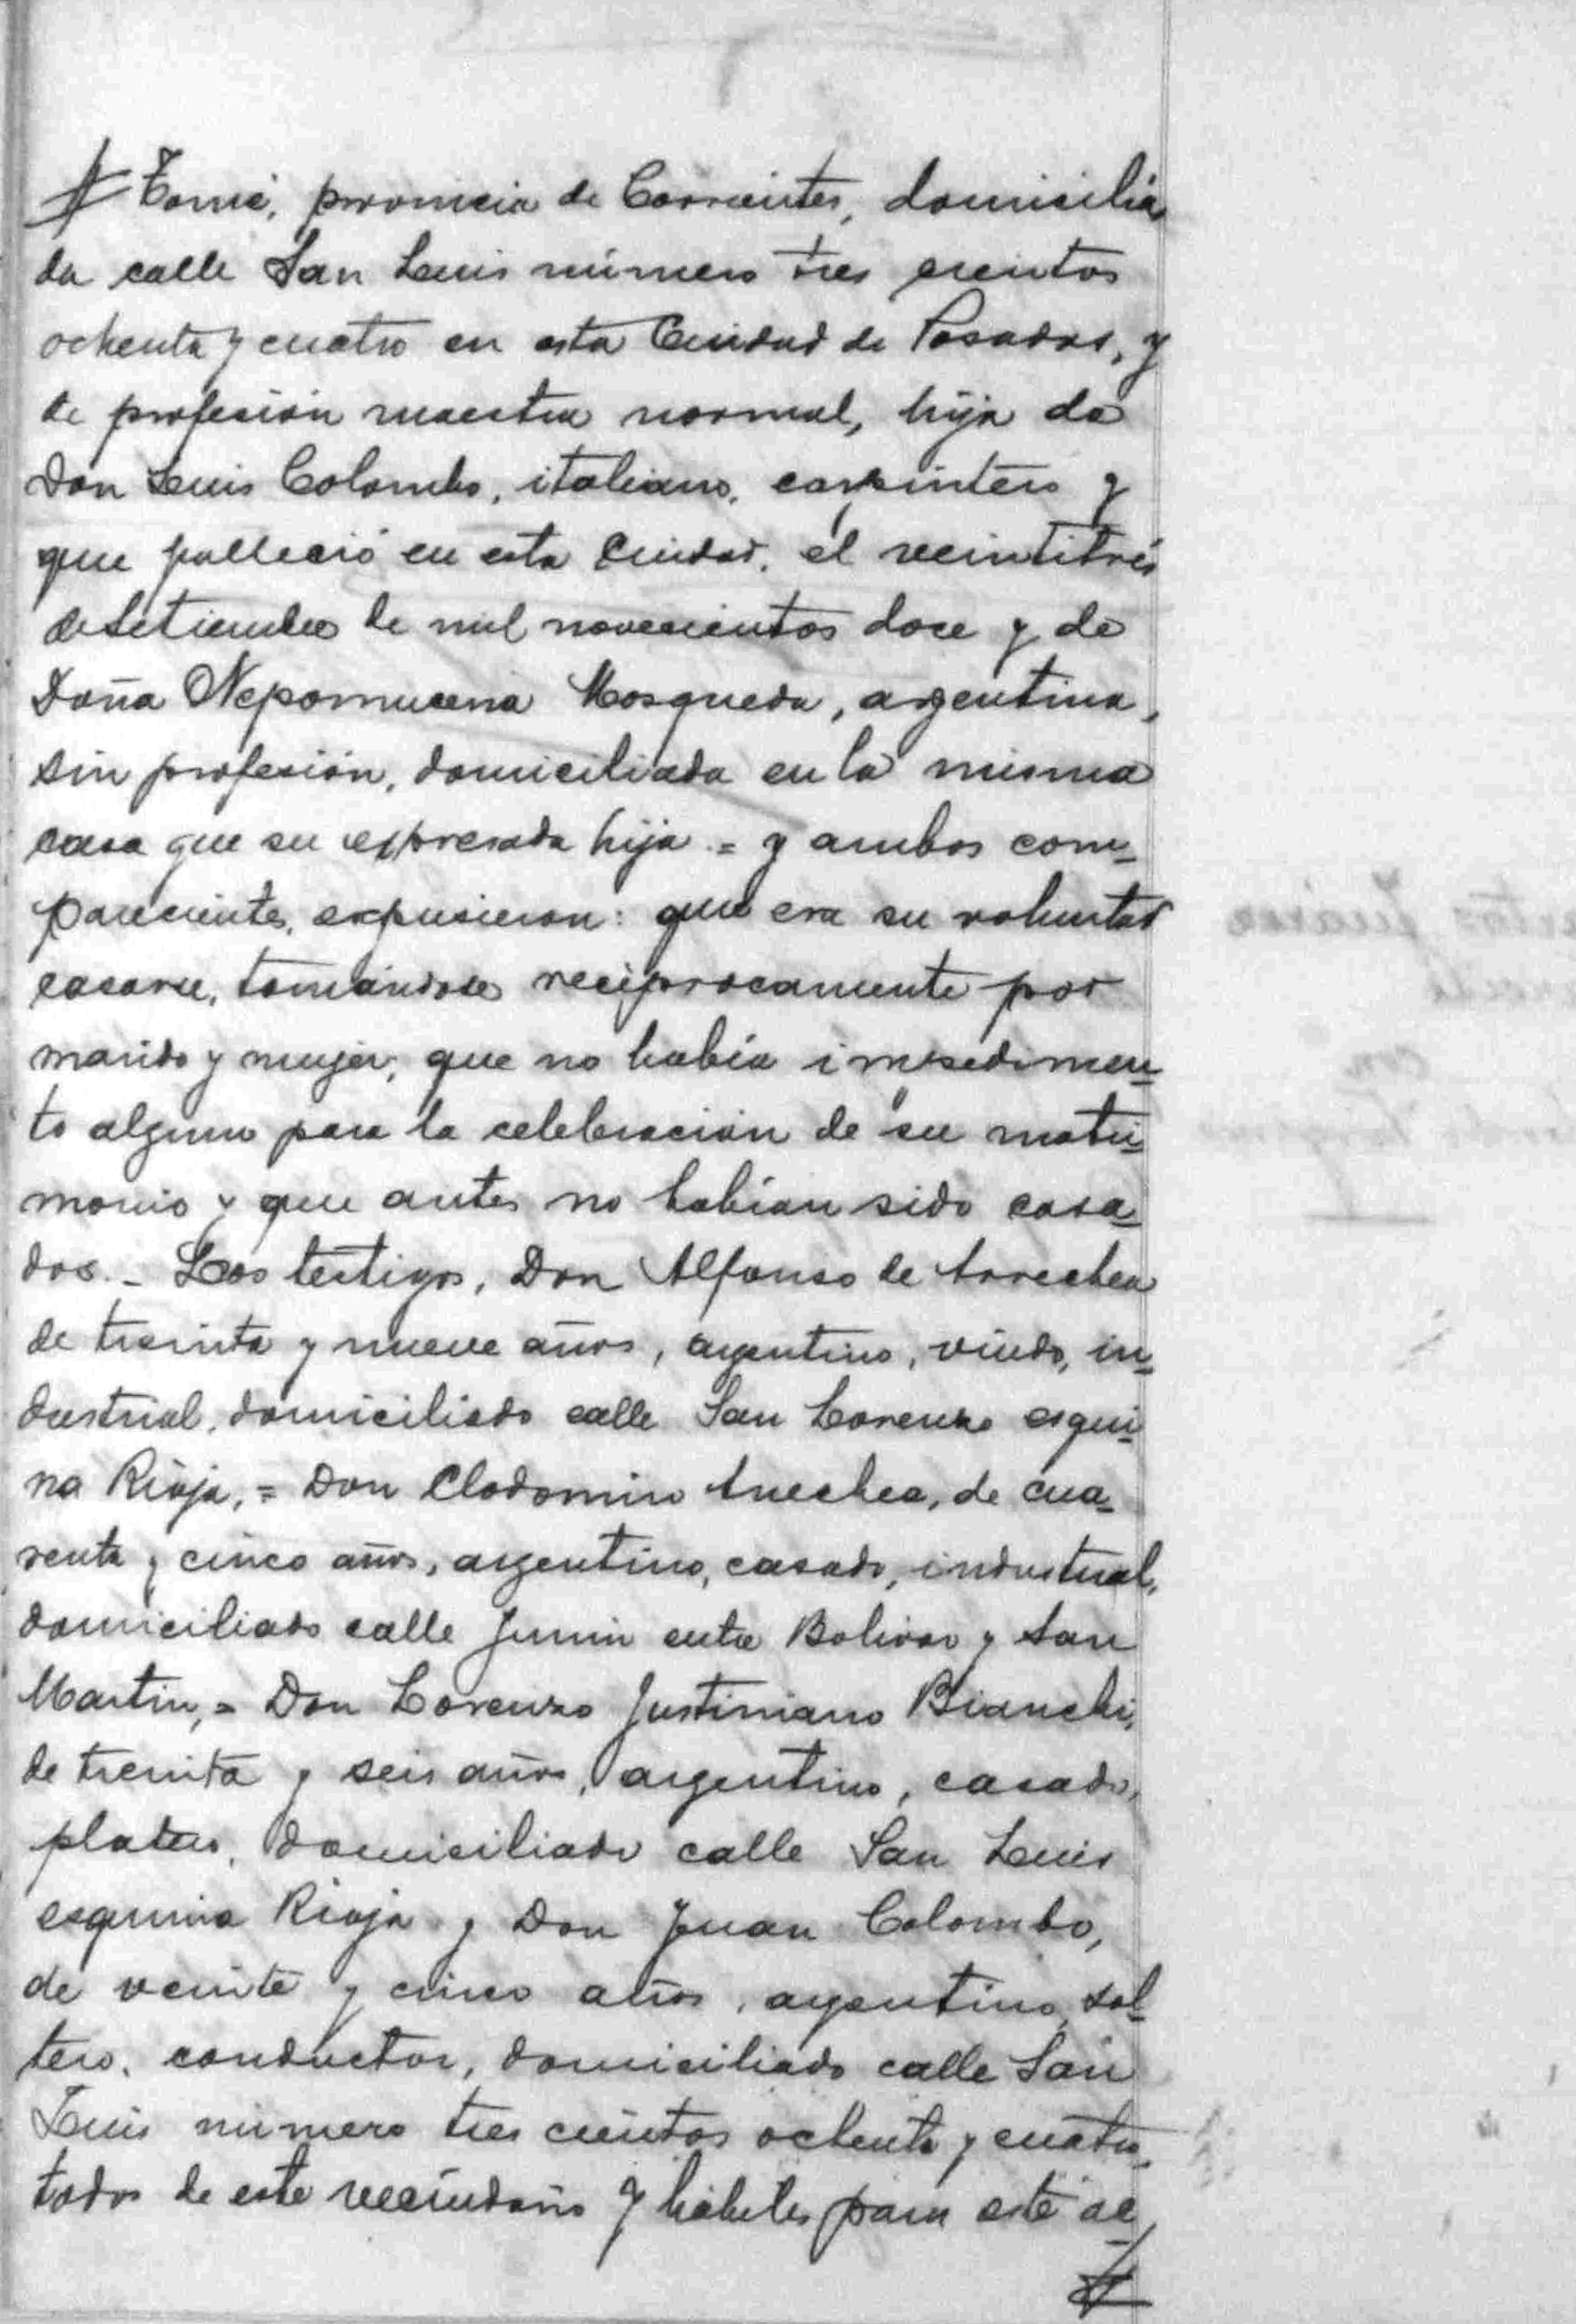 Tomé, provincia de Corrientes, domicilia
da calle San Luis número tres cientos
ochenta y cuatro en esta Ciudad de Posadas, y
de profesión maestra normal, hija de
Don Luis Colombo, italiano, carpintero y
que falleció en esta Ciudad, el veintitrés
de Setiembre de mil novecientos doce y de
Doña Nepomucena Mosqueda, argentina,
sin profesión, domiciliada en la misma
casa que su expresada hija = y ambos com-
parecientes, expusieron: que era su voluntad
casarse, tomándose reciprocamente por
marido y mujer, que no había impedimen-
to alguno para la celebración de su matri-
monio y que antes no habían sido casa-
dos. - Los testigos, Don Alfonso de Arrechea
de treinta y nueve años, argentino, viudo, in-
dustrial, domiciliado calle San Lorenzo esqui-
na Rioja, = Don Clodomiro Arrechea, de cua-
renta y cinco años, argentino, casado, industrial,
domiciliado calle Junin entre Bolivar y San
Martin, = Don Lorenzo Justiniano Bianchi,
de treinta y seis años, argentino, casado,
platero, domiciliado calle San Luis
esquina Rioja y Don Juan Colombo,
de veinte y cinco años, argentino, sol-
tero, conductor, domiciliado calle San
Luis número tres cientos ochenta y cuatro,
todos de este vecindario y hábiles para este ac-